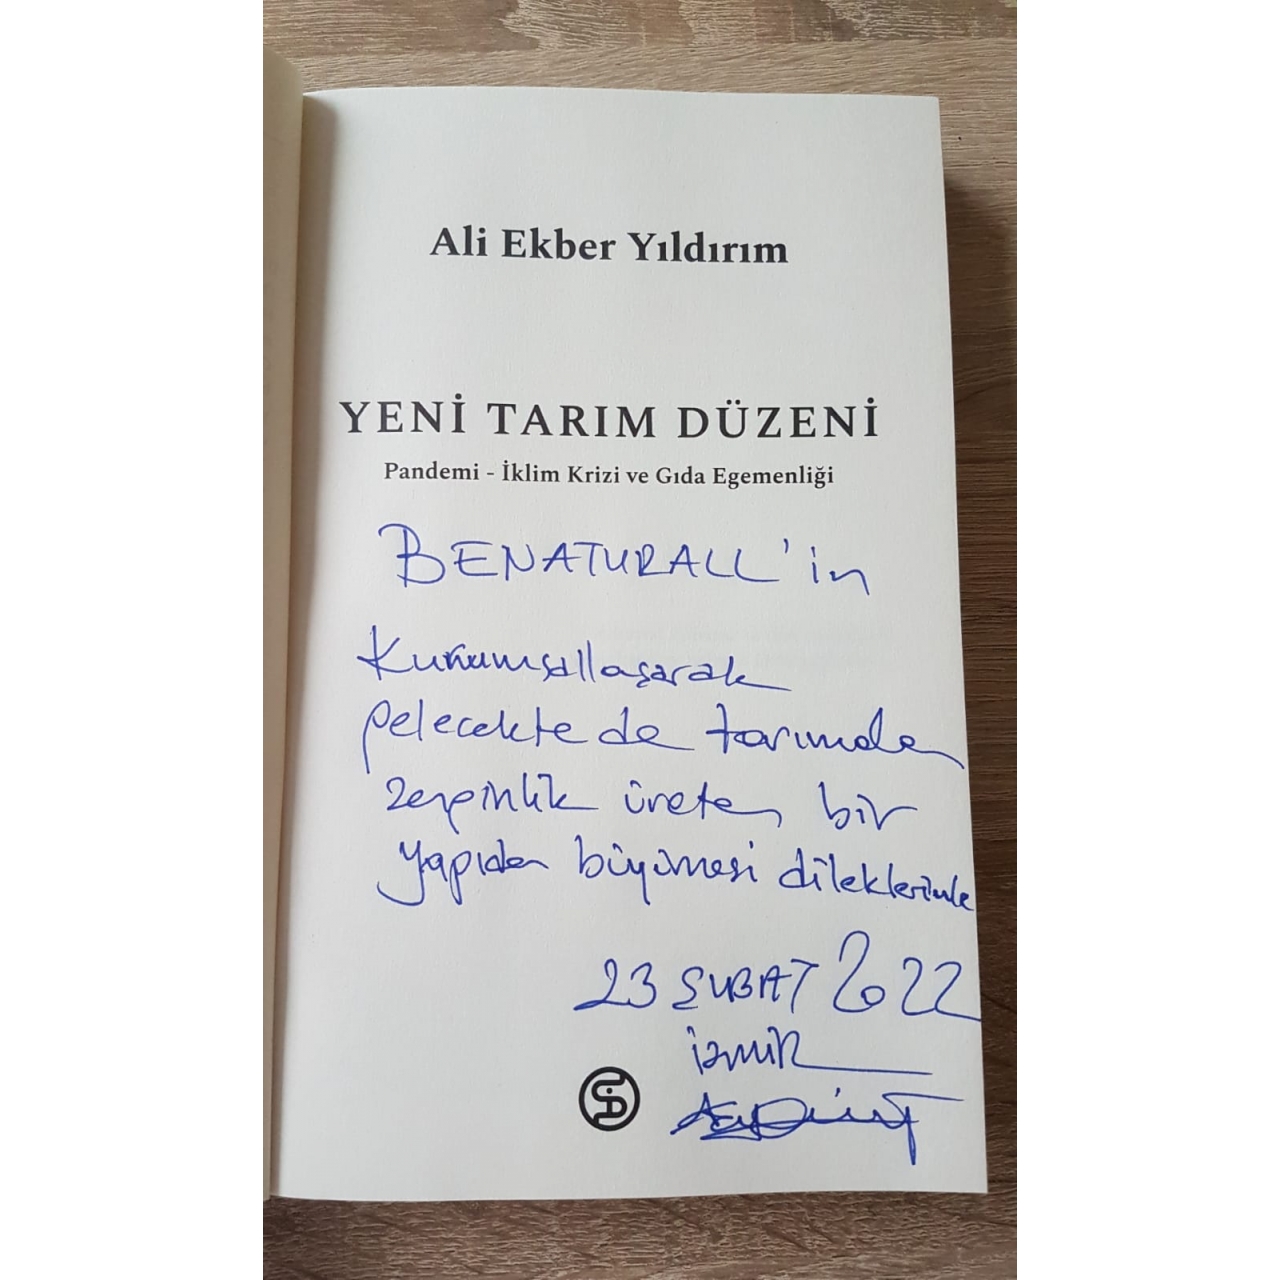 Ali Ekber Yıldırım
YENİ TARIM DÜZENİ
Pandemi - İklim Krizi ve Gıda Egemenliği
BENATURALL'in
Kurumsallaşarak
gelecekte de tarımda
zenginlik üreten bir
yapıda büyümesi dileklerimle
23 ŞUBAT 2022
İzmir